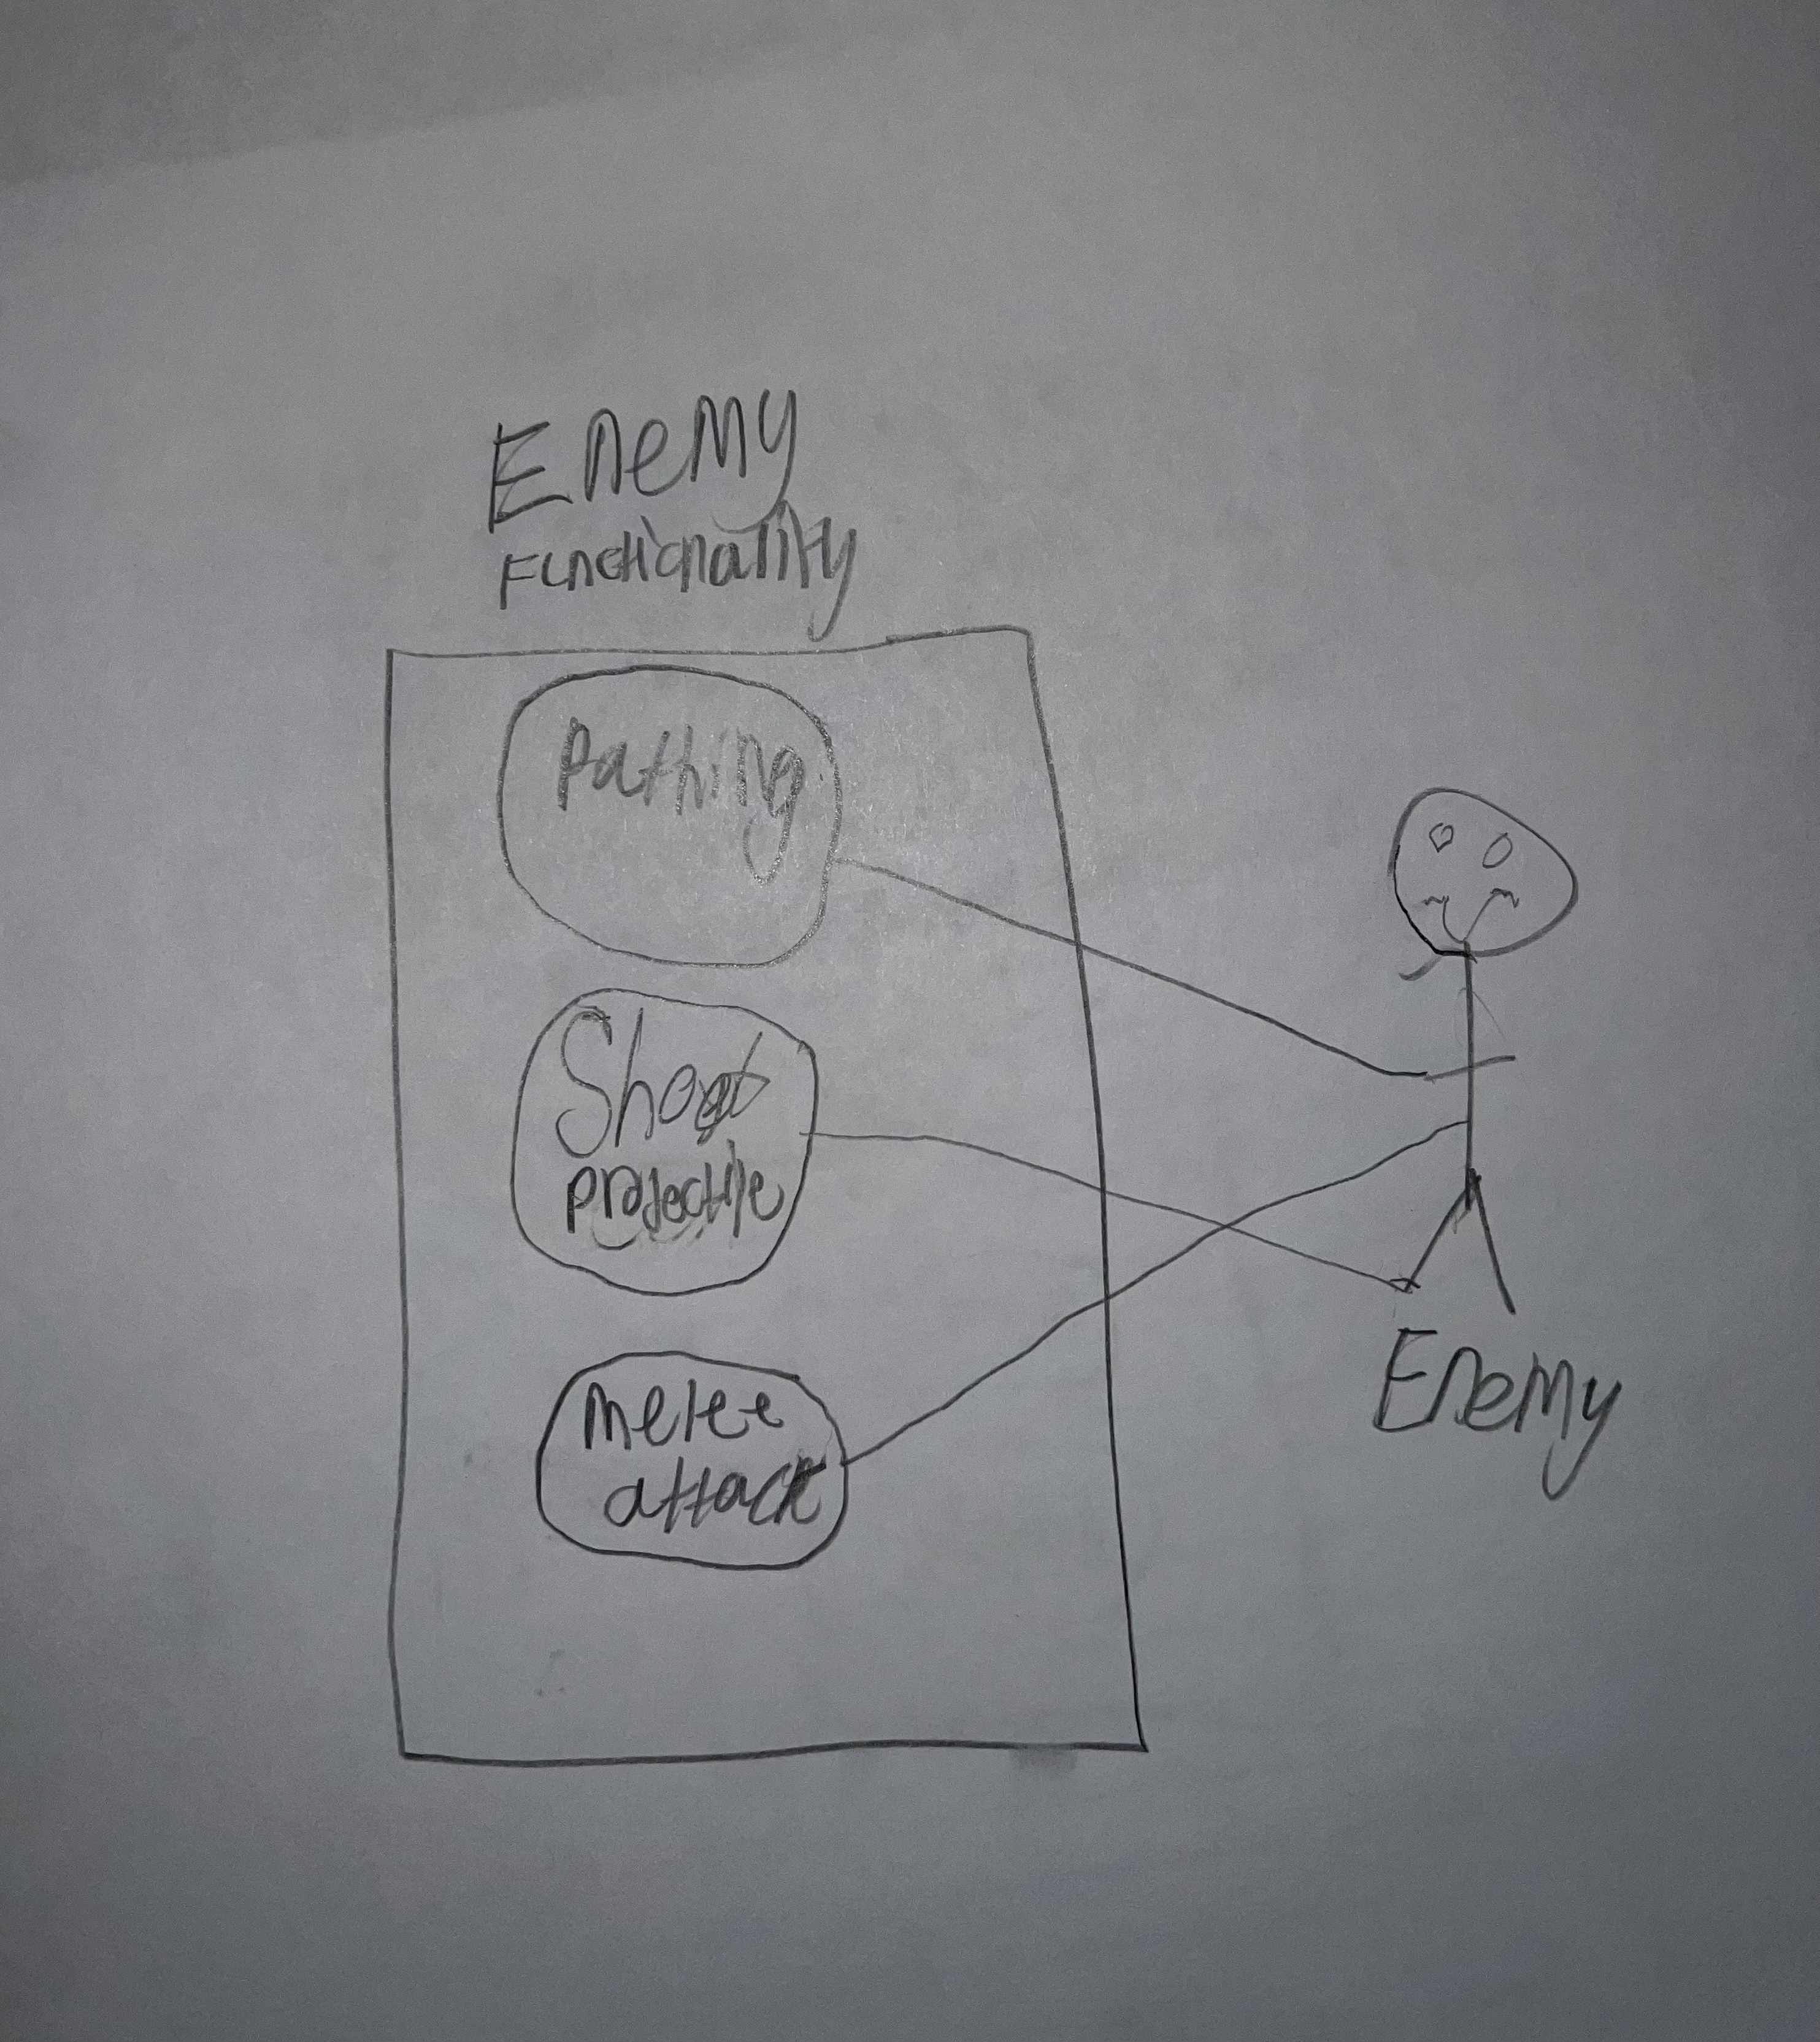 Enemy
Functionality
Pathing
Shoot
projectile
melee
attack
Enemy